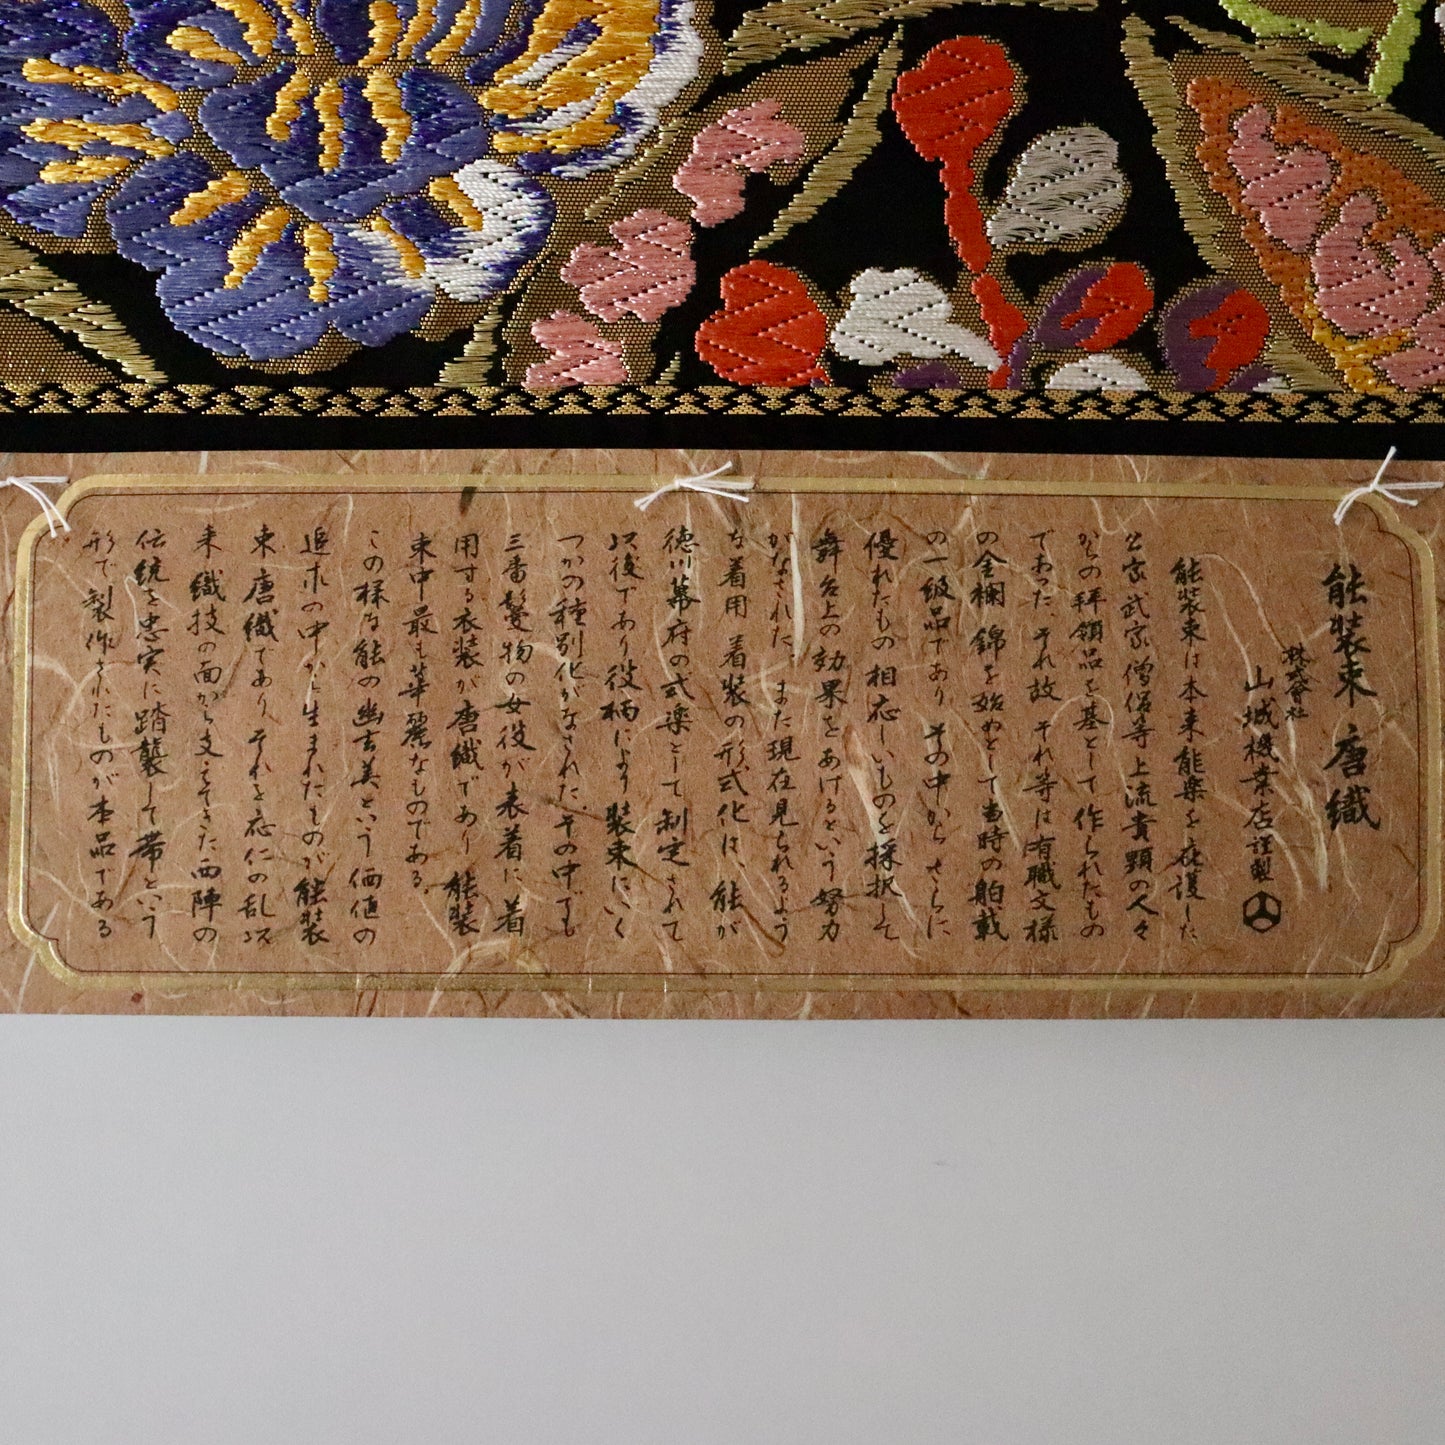 能装束 唐織
株式会社
山城機業店謹製
能装束は本来能楽を庇護した
公家武家僧侶等上流貴顕の人々
からの拝領品を基として作られたもの
であった。それ故 それ等は有職文様
の金襴 錦を始めとして当時の舶載
の一級品であり その中から さらに
優れたもの 相応しいものを採択して
舞台上の効果をあげるという努力
がなされた。また現在見られるよう
な着用 着装の形式化は、能が
徳川幕府の式楽として制定されて
以後であり役柄により装束にいく
つかの種別化がなされた。その中でも
三番鬘物の女役が表着に着
用する衣装が唐織であり 能装
束中最も華麗なものである。
この様な能の幽玄美という価値の
追求の中から生まれたものが能装
束唐織であり それを応仁の乱以
来 織技の面から支えてきた西陣の
伝統を忠実に踏襲して帯という
形で製作されたものが本品である